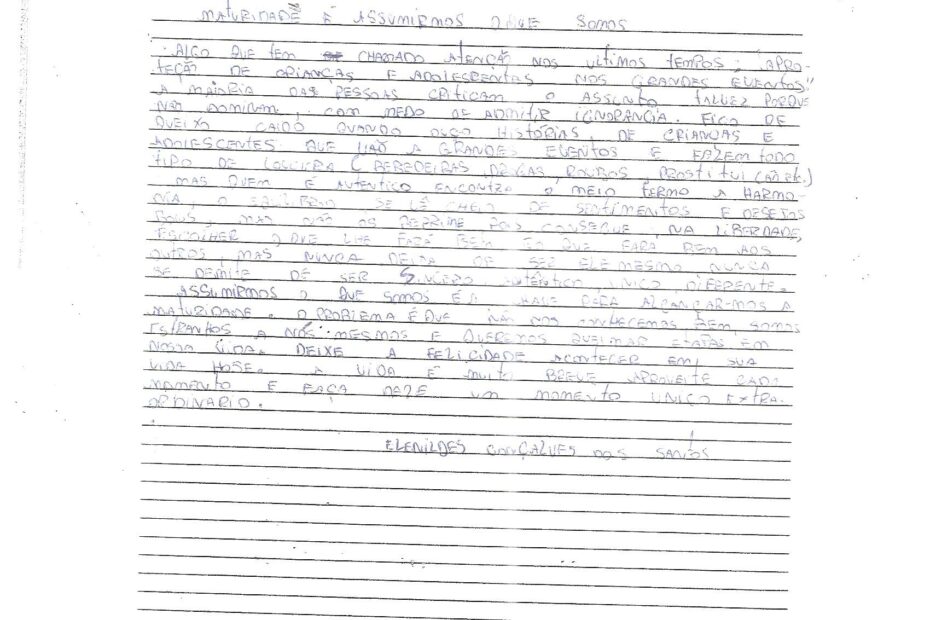 MATURIDADE É ASSUMIRMOS O QUE SOMOS
ALGO QUE TEM CHAMADO ATENÇÃO NOS ULTIMOS TEMPOS; "APRO-
TEÇÃO DE CRIANÇAS E ADOLESCENTAS NOS GRANDES EVENTOS"
A MAIORIA DAS PESSOAS CRITICAM O ASSUNTO, TALVEZ PORQUE
NÃO DOMINAM, COM MEDO DE ADMITIR IGNORÂNCIA. FICO DE
QUEIXO CAIDO QUANDO OUÇO HISTÓRIAS, DE CRIANÇAS E
ADOLESCENTES QUE VÃO A GRANDES EVENTOS E FAZEM TODO
TIPO DE LOUCURA ( BEBEDEIRAS, DROGAS, ROUBOS, PROSTITUI
MAS QUEM É AUTENTICO ENCONTRA O MEIO TERMO A HARMO-
NIA, O SE CHEIO DE SENTIMENTOS E DESEJOS
MAS NÃO OS REPRIME POIS CONSEGUE, NA LIBERDADE,
ESCOLHER O QUE LHE FARÁ BEM E O QUE FARA BEM AOS
OUTROS, MAS NUNCA DEIXA DE SER ELE MESMO NUNCA
SE DEMITE DE SER SINCERO, AUTÊNTICO, UNICO, DIFERENTE.
ASSUMIRMOS O QUE SOMOS É A BASE PARA ALCANÇAR-MOS A
MATURIDADE. O PROBLEMA É QUE NÃO NOS CONHECEMOS BEM, SOMOS
ESTRANHOS A NÓS MESMOS E QUEREMOS QUEIMAR ETAPAS EM
NOSSA VIDA. DEIXE A FELICIDADE ACONTECER EM SUA
VIDA HOJE. A VIDA É MUITO BREVE APROVEITE CADA
MOMENTO E FAÇA DELE UM MOMENTO UNICO EXTRA-
ORDINARIO.
ELENILDES GONÇALVES DOS SANTOS